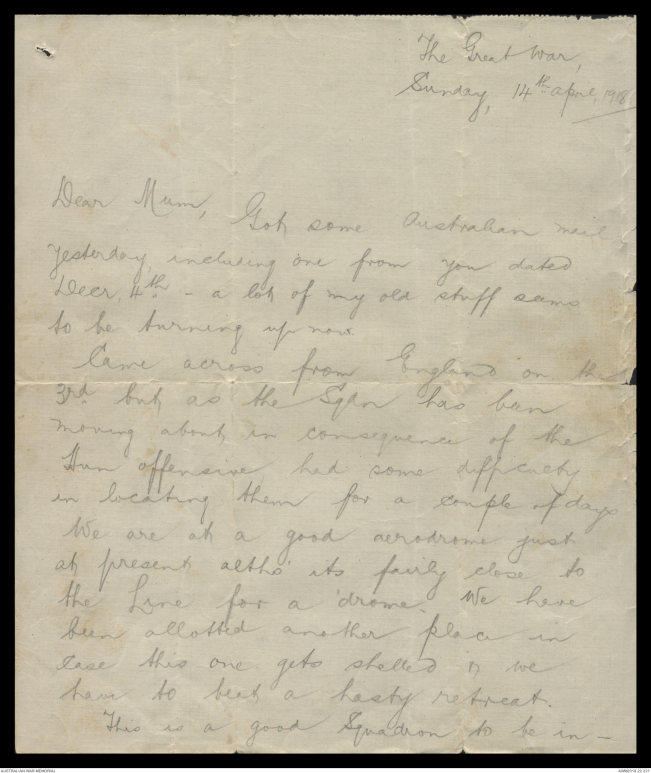 The Great War,
Sunday, 14th April, 1918
Dear Mum,
Got some Australian mail
yesterday, including one from you dated
Decr. 4th - a lot of my old stuff seems
to be turning up now.
Came across from England on the
3rd but as the Sqdn has been
moving about in consequence of the
Hun offensive had some difficulty
in locating them for a couple of days
We are at a good aerodrome just
at present altho' its fairly close to
the Line for a 'drome. We have
been allotted another place in
case this one gets shelled or we
have to beat a hasty retreat.
This is a good Squadron to be in -
AUSTRALIAN WAR MEMORIAL